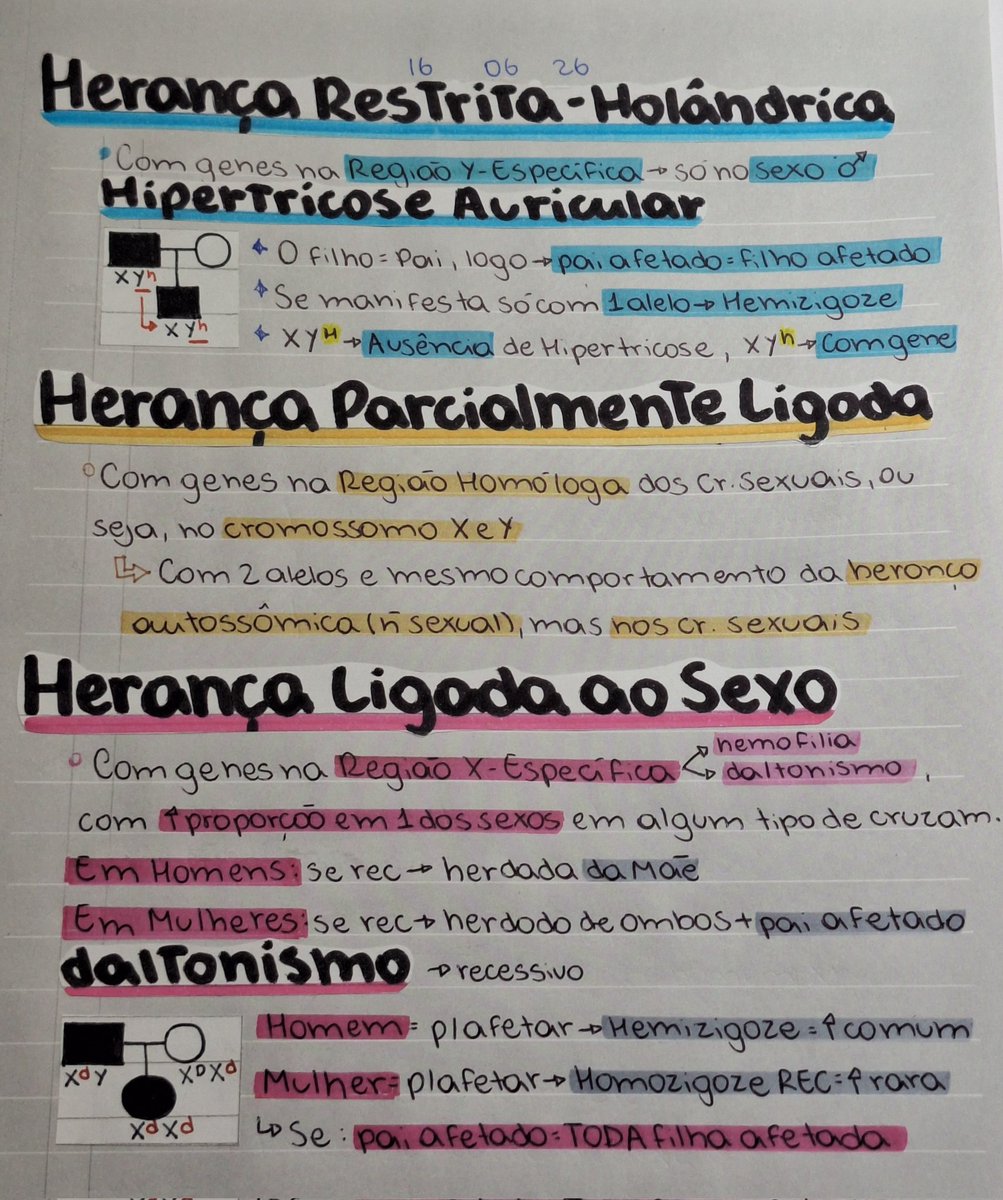 16 06 26
Herança Restrita - Holândrica
Com genes na Região Y-Específica → só no sexo ♂
Hipertricose Auricular
O filho = Pai, logo → pai afetado = filho afetado
XYʰ
Se manifesta só com 1 alelo → Hemizigoze
XYʰ
XYᴴ → Ausência de Hipertricose, XYʰ → Com gene
Herança Parcialmente Ligada
Com genes na Região Homóloga dos Cr. Sexuais, ou
seja, no cromossomo X e Y
↳ Com 2 alelos e mesmo comportamento da herança
autossômica (ñ sexual), mas nos cr. sexuais
Herança Ligada ao Sexo
hemofilia
Com genes na Região X-Específica < daltonismo,
com ↑ proporção em 1 dos sexos em algum tipo de cruzam.
Em Homens: se rec → herdada da Mãe
Em Mulheres: se rec → herdado de ambos + pai afetado
daltonismo → recessivo
Homem = p/afetar → Hemizigoze = ↑ comum
XᵈY XᴰXᵈ
Mulher = p/afetar → Homozigoze REC = ↑ rara
XᵈXᵈ
↳ Se: pai afetado = TODA filha afetada